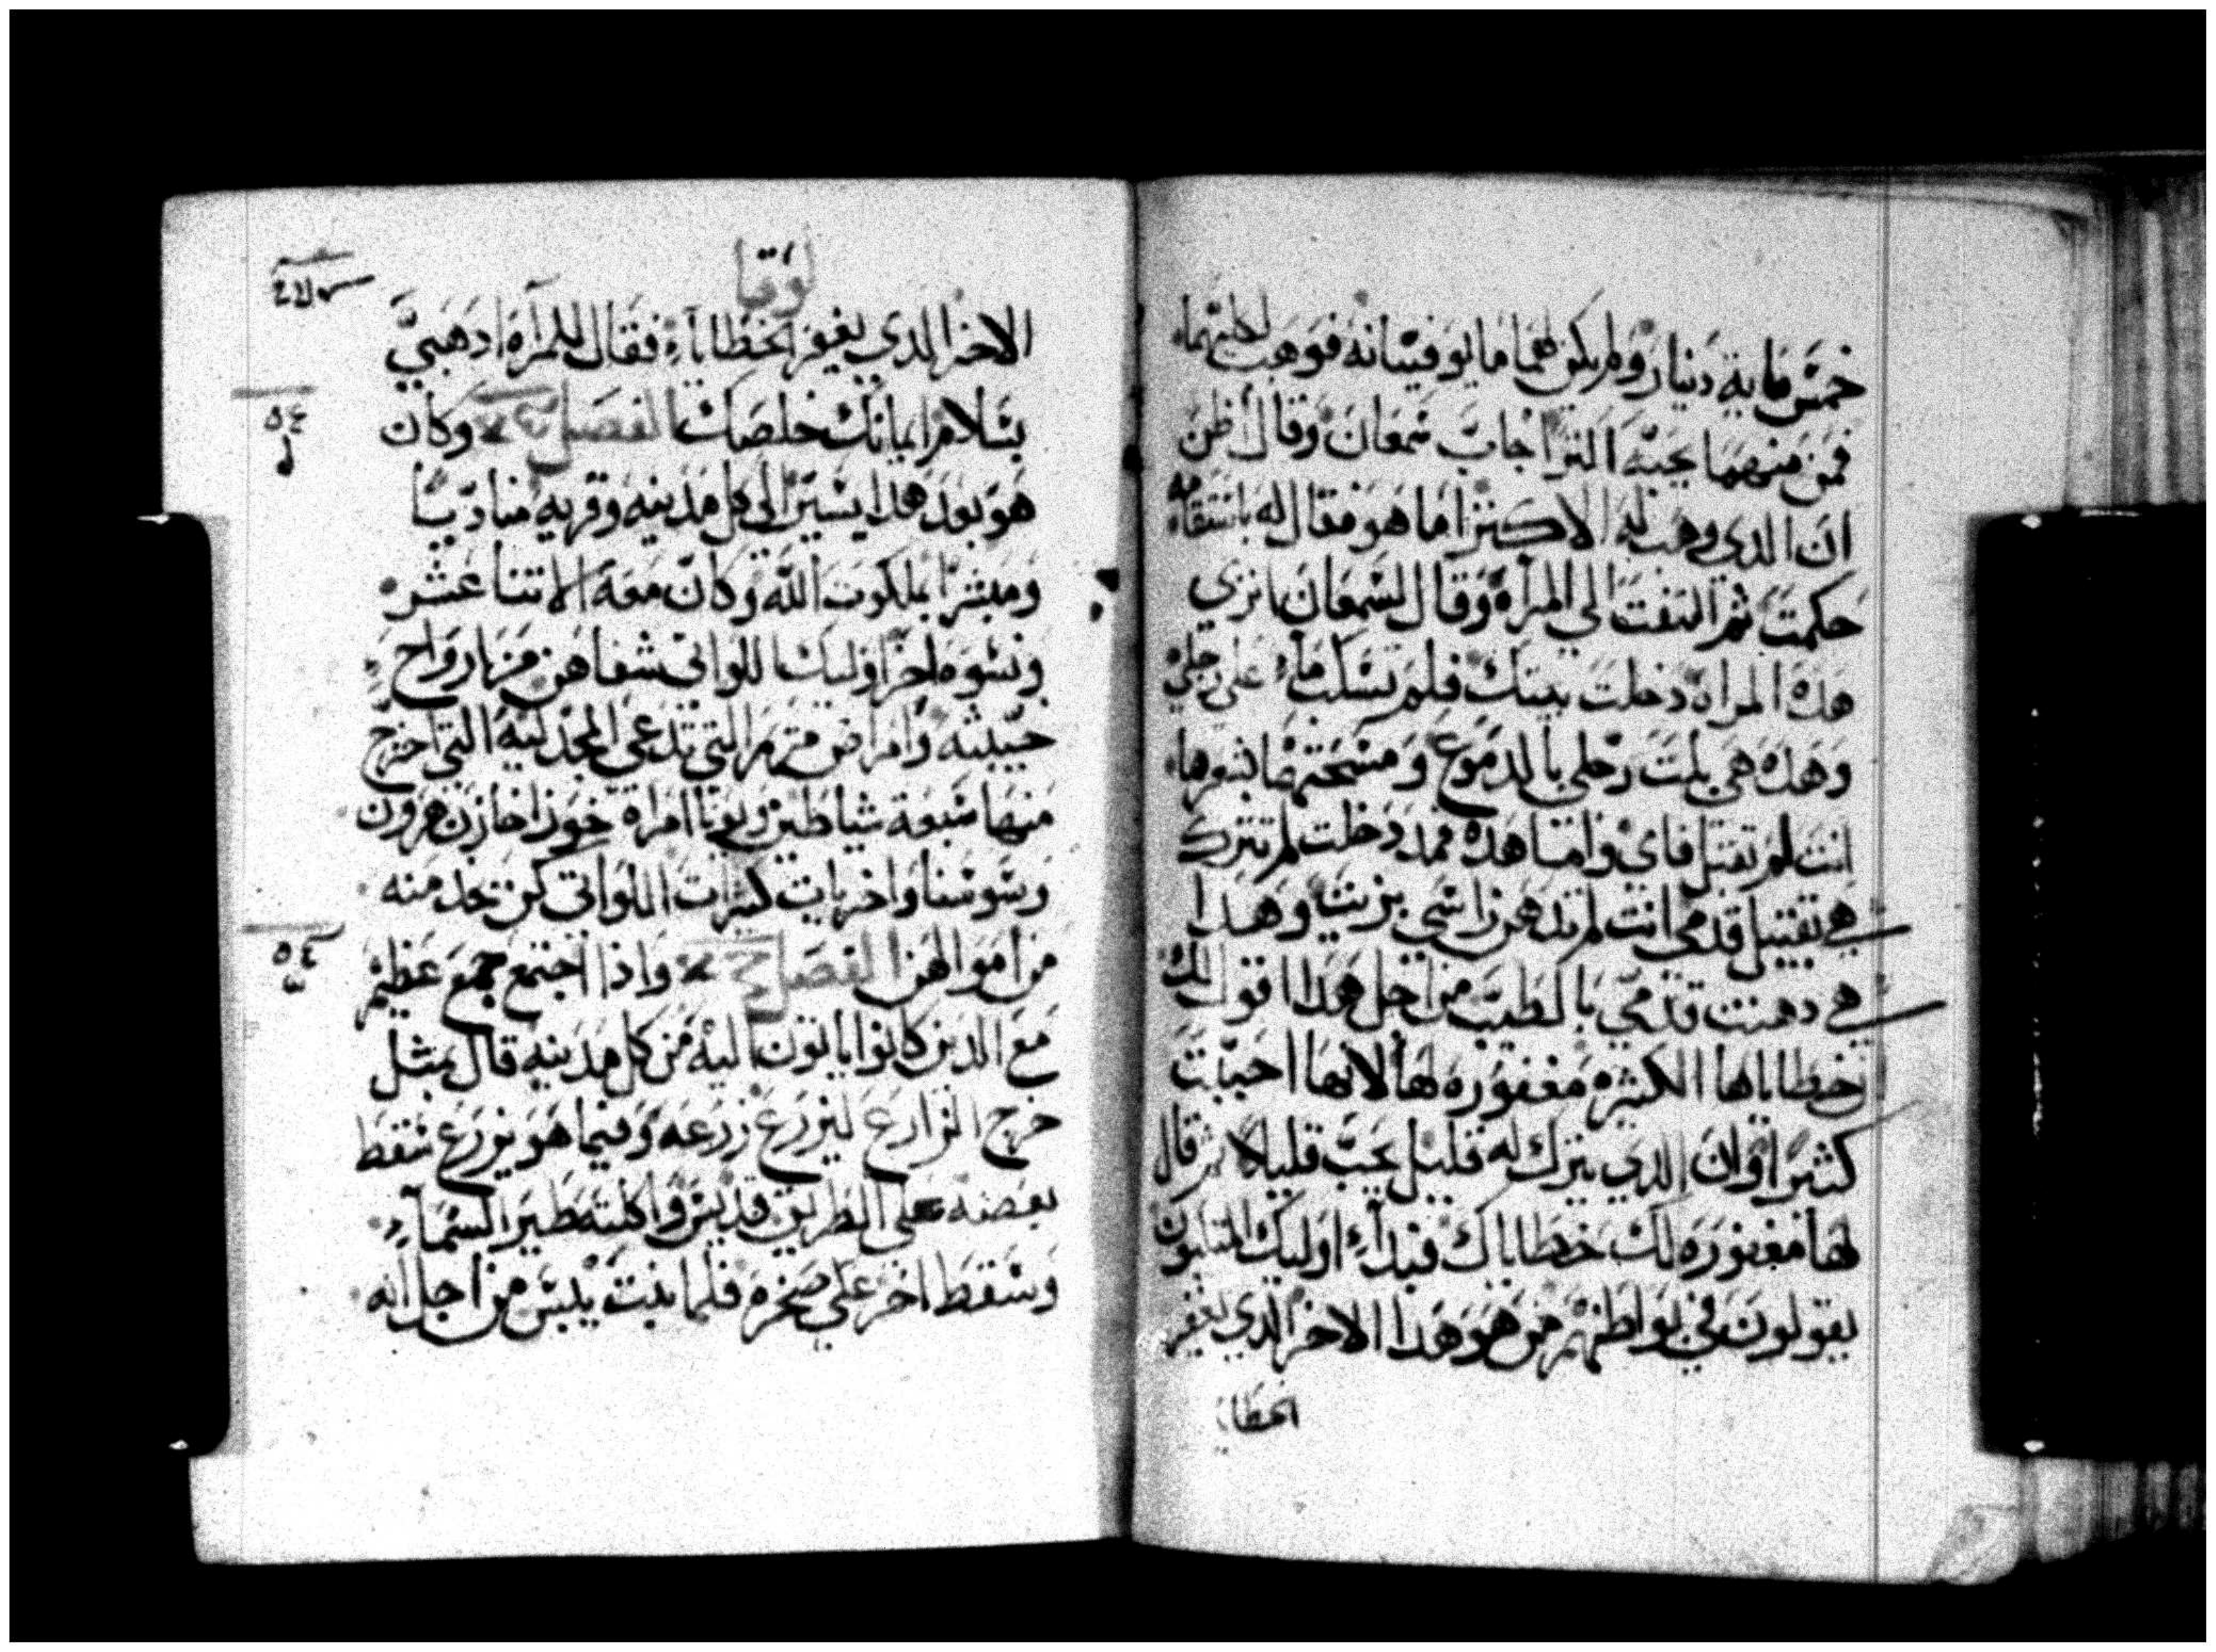 خمس ماية دينار ولم يكن لهما ما يوفيانه فوهب لكليهما
فمن منهما يحبه اكثر اجاب سمعان وقال اظن
ان الدي وهب له الاكثر اما هو فقال له باستقامه
حكمت ثم التفت الي المراه وقال لسمعان اتري
هده المراه دخلت بيتك فلم تسكب ماء علي رجلي
وهده هي بلت رجلي بالدموع ومسحتهما بشعرها
انت لم تقبل فاي واما هده فمد دخلت لم تترك
هي تقبيل قدمي انت لم تدهن راسي بزيت وهدا
هي دهنت قدمي بالطيب من اجل هدا اقول لك
خطاياها الكثيره مغفوره لها لانها احبت
كثيرا وان الدي يترك له قليل يحب قليلا ثم قال
لها مغفوره لك خطاياك فبداء اوليك المتكيون
يقولون في بواطنهم من هو هدا الاخر الدي يغفر
الخطايا
لوقا
الاخر الدي يغفر الخطاياء فقال للمراه ادهبي
بسلام ايمانك خلصك الفصل وكان
هو بعد هدا يسير الي كل مدينه وقريه مناديا
ومبشرا بملكوت الله وكان معه الاتنا عشر
ونسوه اخر اوليك اللواتي شفاهن من ارواح
خبيثه وامراض مريم التي تدعي المجدليه التي اخرج
منها سبعة شياطين ويونا امراه خوزا خازن هرودن
وسوسنا واخريات كثيرات اللواتي كن يخدمنه
من اموالهن الفصل واذا اجتمع جمع عظيم
مع الدين كانوا ياتون اليه من كل مدينه قال بمثل
خرج الزارع ليزرع زرعه وفيما هو يزرع سقط
بعضه علي الطريق فديس واكلته طير السماء
وسقط اخر علي صخره فلما نبت يبس من اجل انه